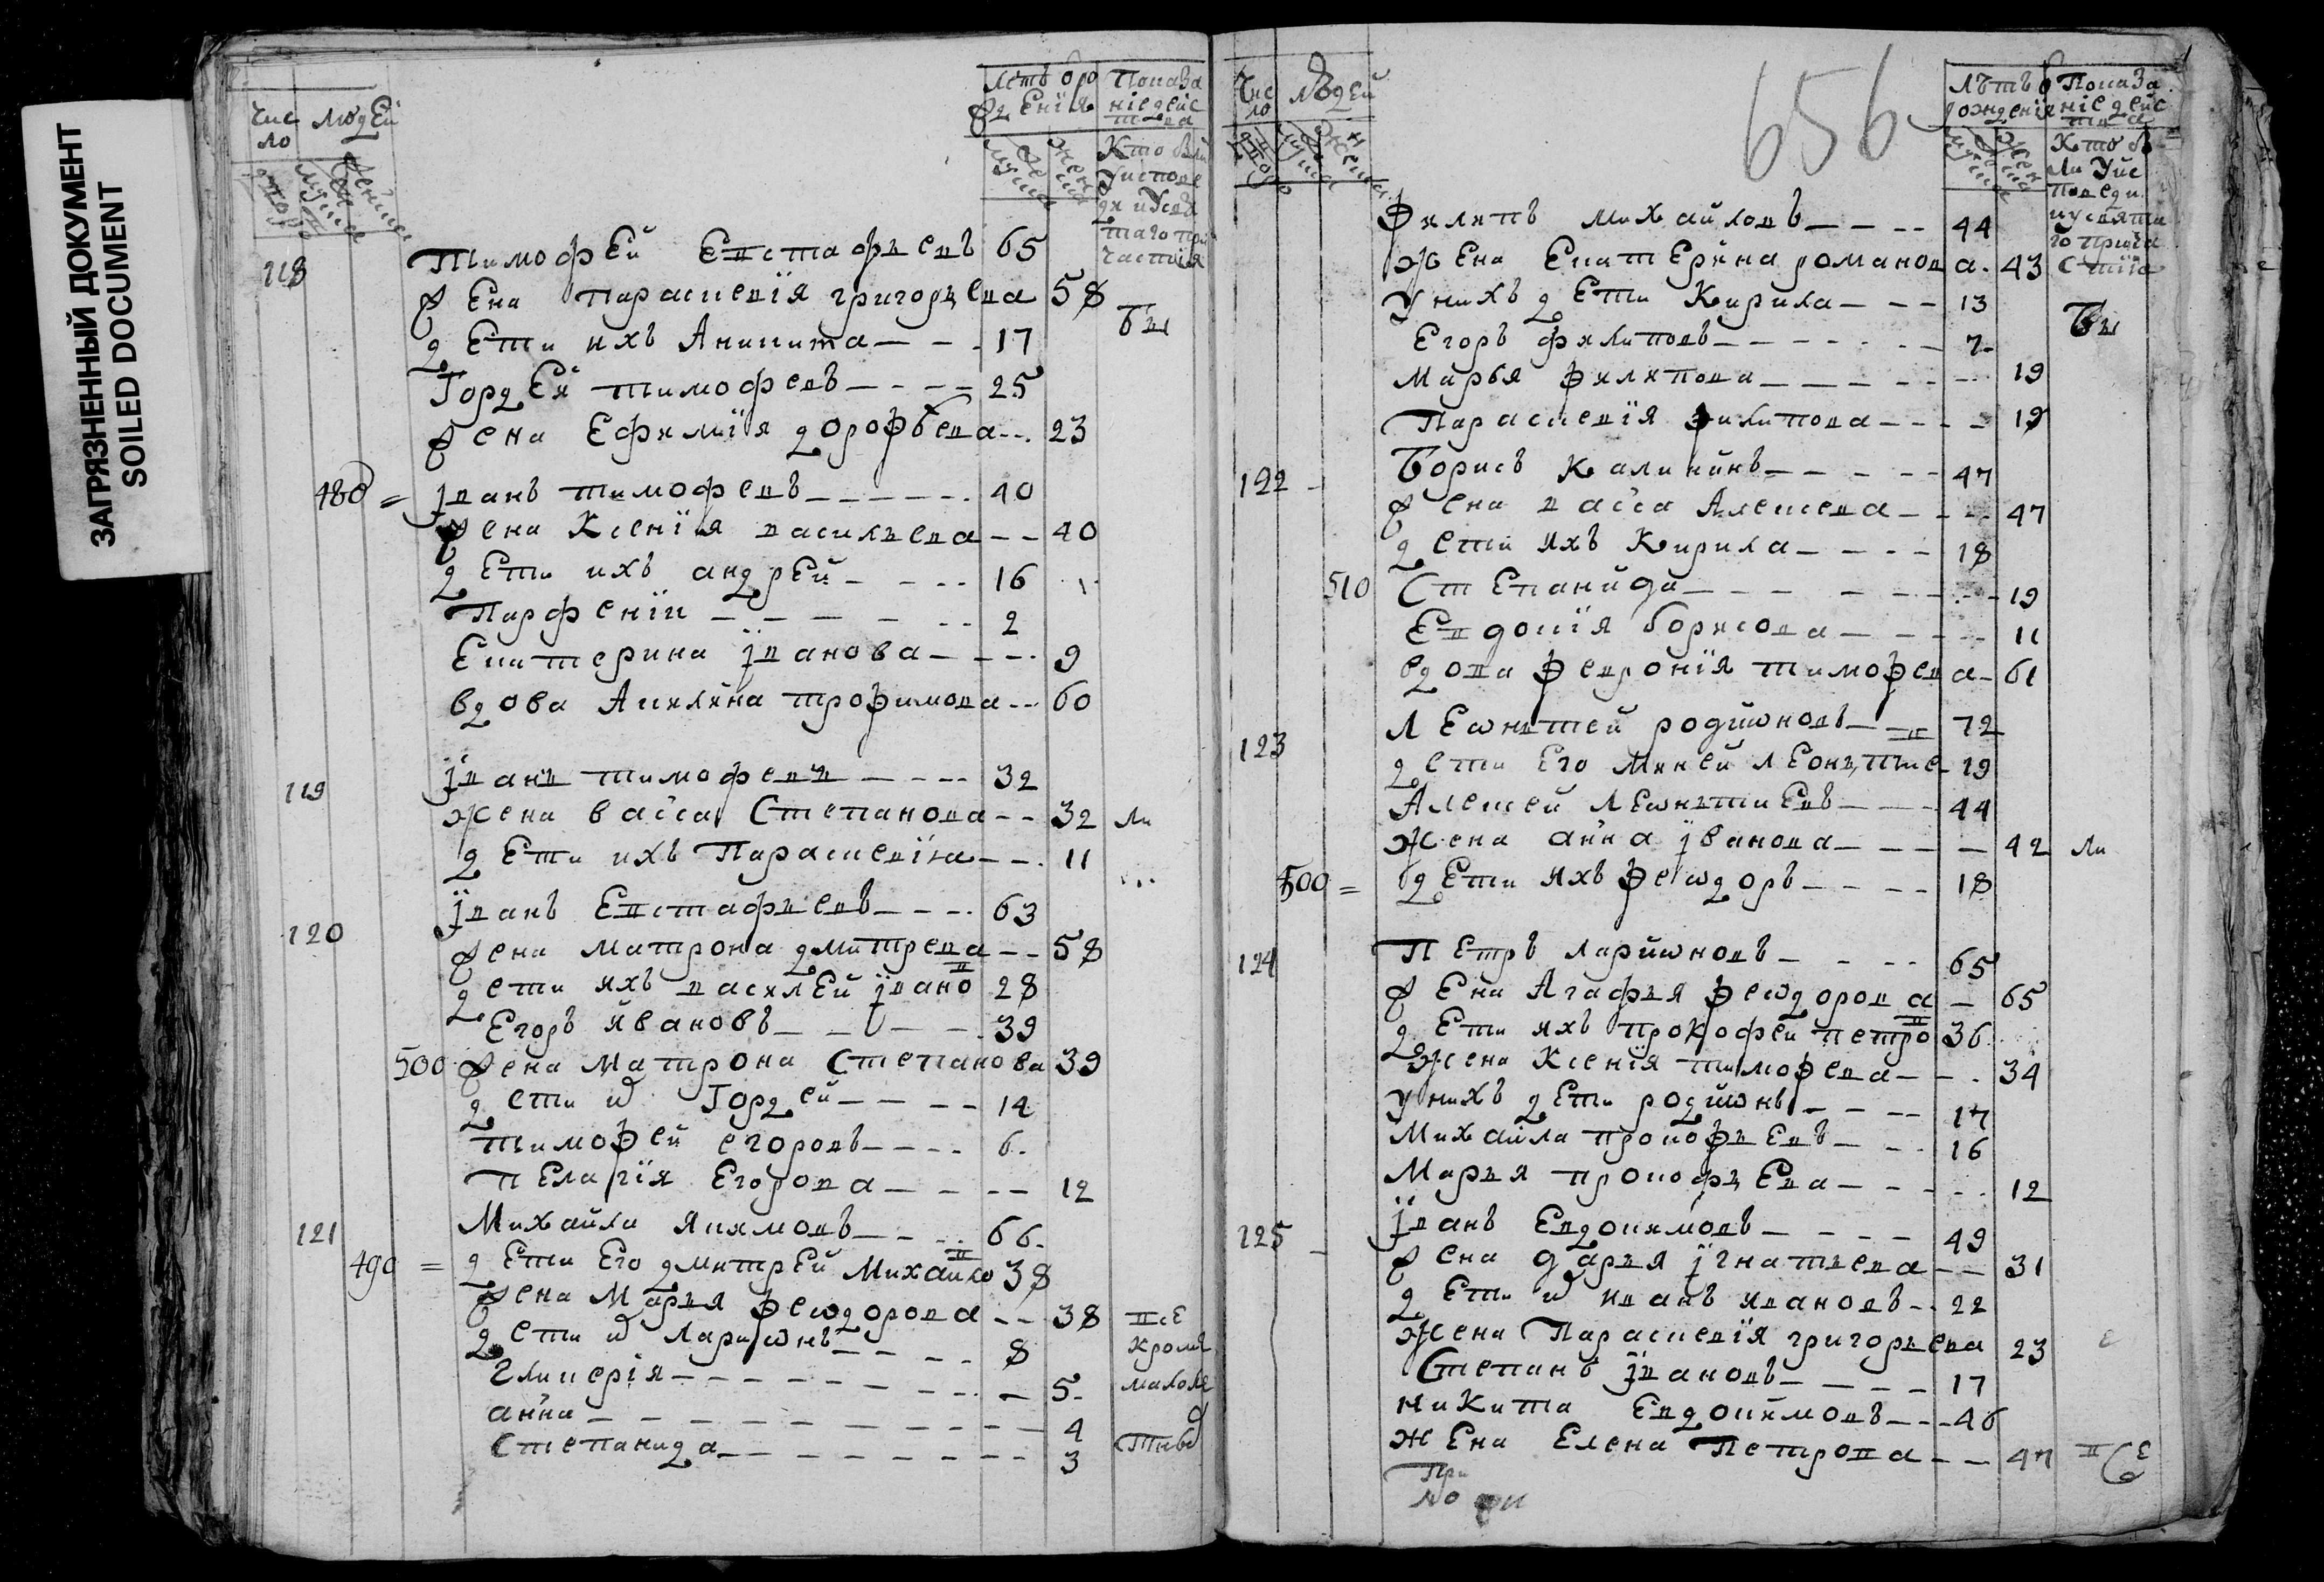 ЗАГРЯЗНЕННЫЙ ДОКУМЕНТ
SOILED DOCUMENT
Чис ло людей
Летъ о ро жденїя
Показа нїе дейс тва
Кто были у испове ди и у свя таго при частия
118 Тимофей Евстафьевъ 65
Жена параскевїя григорьева 58
дети ихъ Аникита 17
Гордей тимофевъ 25
жена Ефимїя дорофѣева 23
480 = їванъ тимофевъ 40
жена Ксенїя васильева 40
дети ихъ андрей 16
Парфенїи 2
Екатерина їванова 9
вдова Акилина трофимова 60
119 їванъ тимофевъ 32
жена васса Степанова 32
дети ихъ Параскевїя 11
120 їванъ Евстафьевъ 63
жена матрона дмитрева 58
дети ихъ василей їванов 28
Егоръ ивановъ 39
500 жена матрона Степанова 39
дети и Гордей 14
тимофей егоровъ 6
пЕлагїя Егорова 12
121 Михайла Якимовъ 66
490 = дети Его дмитрей Михайлов 38
жена Марья феѡдорова 38
дети и лариѡнъ 8
Гликерїя 5
анна 4
Степанида 3
Бы
ли
все
кроме
малоле
тнвъ
656
Чис ло людей
лѣтъ о рожденїя
Показа нїе дейс тва
Кто бы ли у ис поведи и у святаго прича стїя
Филипъ михайловъ 44
жена Екатерина романова 43
у нихъ дети Кирила 13
Егоръ филиповъ 7
марья филипова 19
Параскевїя филипова 19
122 Борисъ Калининъ 47
жена васса Алексева 47
дети ихъ Кирила 18
510 Степанида 19
Евдокїя борисова 11
вдова феврониїя тимофева 61
123 лЕѡнтей родиѡновъ 72
дети Его Миней лЕонтие 19
Алексей лЕѡнтиевъ 44
жена анна їванова 42
500 = дети ихъ феѡдоръ 18
124 Петръ лариѡновъ 65
жена Агафья феѡдорова 65
дети ихъ прокофеи петров 36
жена Ксенїя тимофева 34
у нихъ дети родиѡнъ 17
михайла прокофьевъ 16
Марья прокофьева 12
125 їванъ Евдокимовъ 49
жена дарья їгнатьева 31
дети и иванъ ивановъ 22
жена Параскевїя григорьева 23
Степанъ їановъ 17
никита Евдокимовъ 46
жена Елена Петрова 47
Бы
ли
все
При